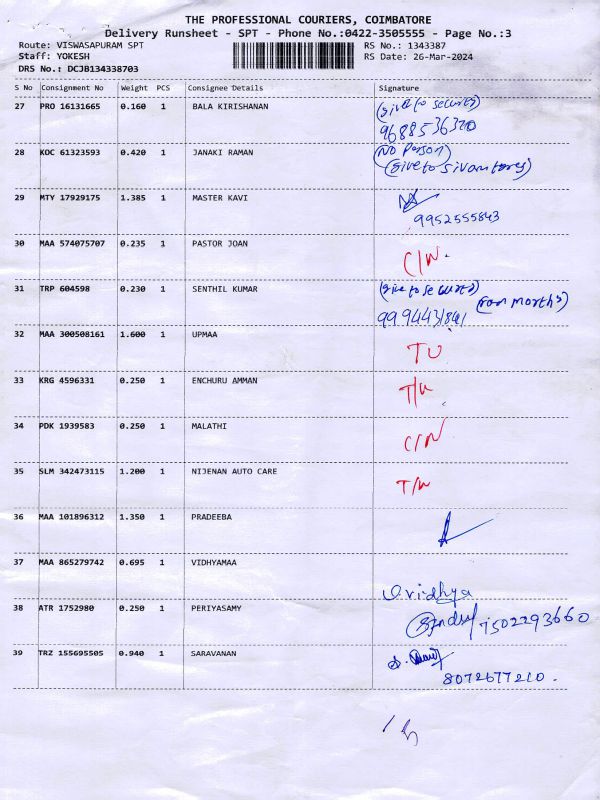 THE PROFESSIONAL COURIERS, COIMBATORE
Delivery Runsheet - SPT - Phone No.:0422-3505555 - Page No.:3
Route: VISWASAPURAM SPT RS No.: 1343387
Staff: YOKESH RS Date: 26-Mar-2024
DRS No.: DCJB134338703
S No Consignment No Weight PCS Consignee Details Signature
27 PRO 16131665 0.160 1 BALA KIRISHANAN (give to security)
9688536320
28 KOC 61323593 0.420 1 JANAKI RAMAN (No Person)
(give to
29 MTY 17929175 1.385 1 MASTER KAVI
9952555843
30 MAA 574075707 0.235 1 PASTOR JOAN C/N.
31 TRP 604598 0.230 1 SENTHIL KUMAR (give to
32 MAA 300508161 1.600 1 UPMAA TU
33 KRG 4596331 0.250 1 ENCHURU AMMAN
34 PDK 1939583 0.250 1 MALATHI C/N
35 SLM 342473115 1.200 1 NIJENAN AUTO CARE
36 MAA 101896312 1.350 1 PRADEEBA
37 MAA 865279742 0.695 1 VIDHYAMAA
38 ATR 1752980 0.250 1 PERIYASAMY 7502293660
39 TRZ 155695505 0.940 1 SARAVANAN
8072677210.